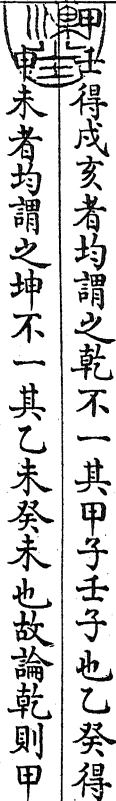 甲壬得戌亥者均謂之乾不一其甲子壬子也乙癸得
申未者均謂之坤不一其乙未癸未也故論乾則甲